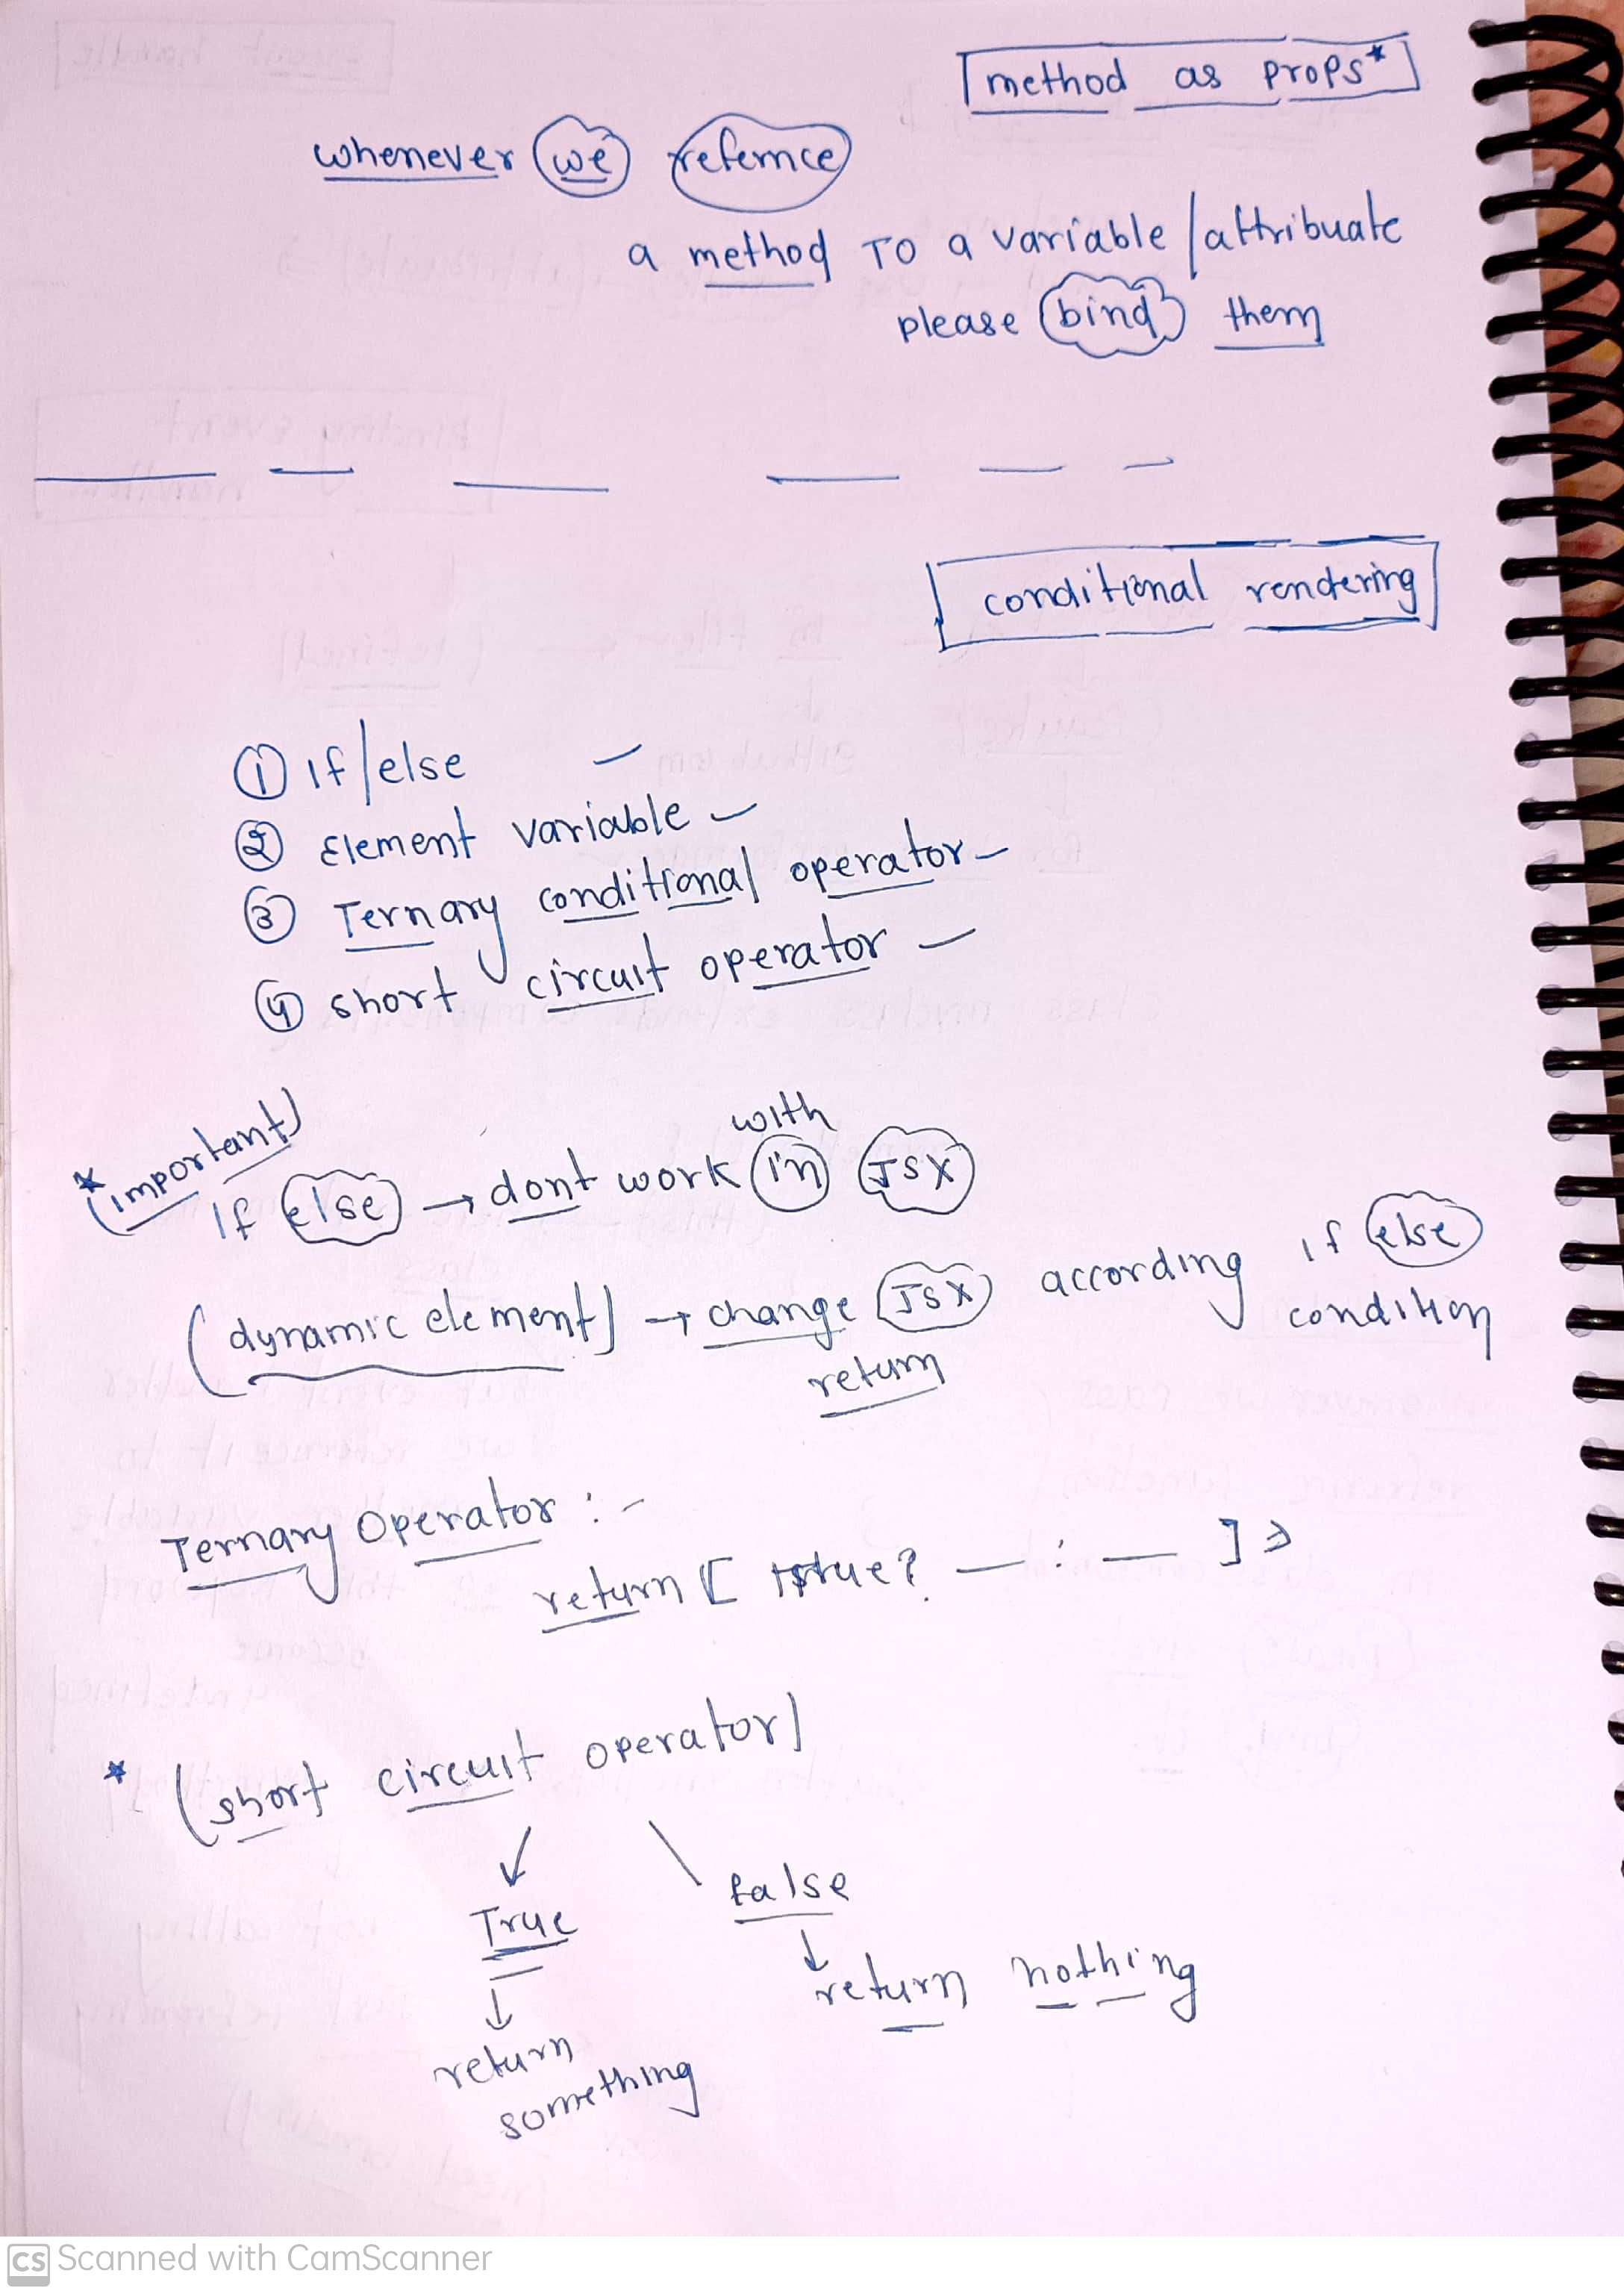 method as props*
whenever we refernce
a method TO a variable / attribuate
please bind them
conditional rendering
① if/else
② Element variable
③ Ternary conditional operator
④ short circuit operator
* (important)
with
If else → dont work in JSX
(dynamic element) → change JSX according if else
return condition
Ternary Operator :-
return [ ? — : — ]
* (short circuit operator)
True false
return nothing
return
something
CS Scanned with CamScanner